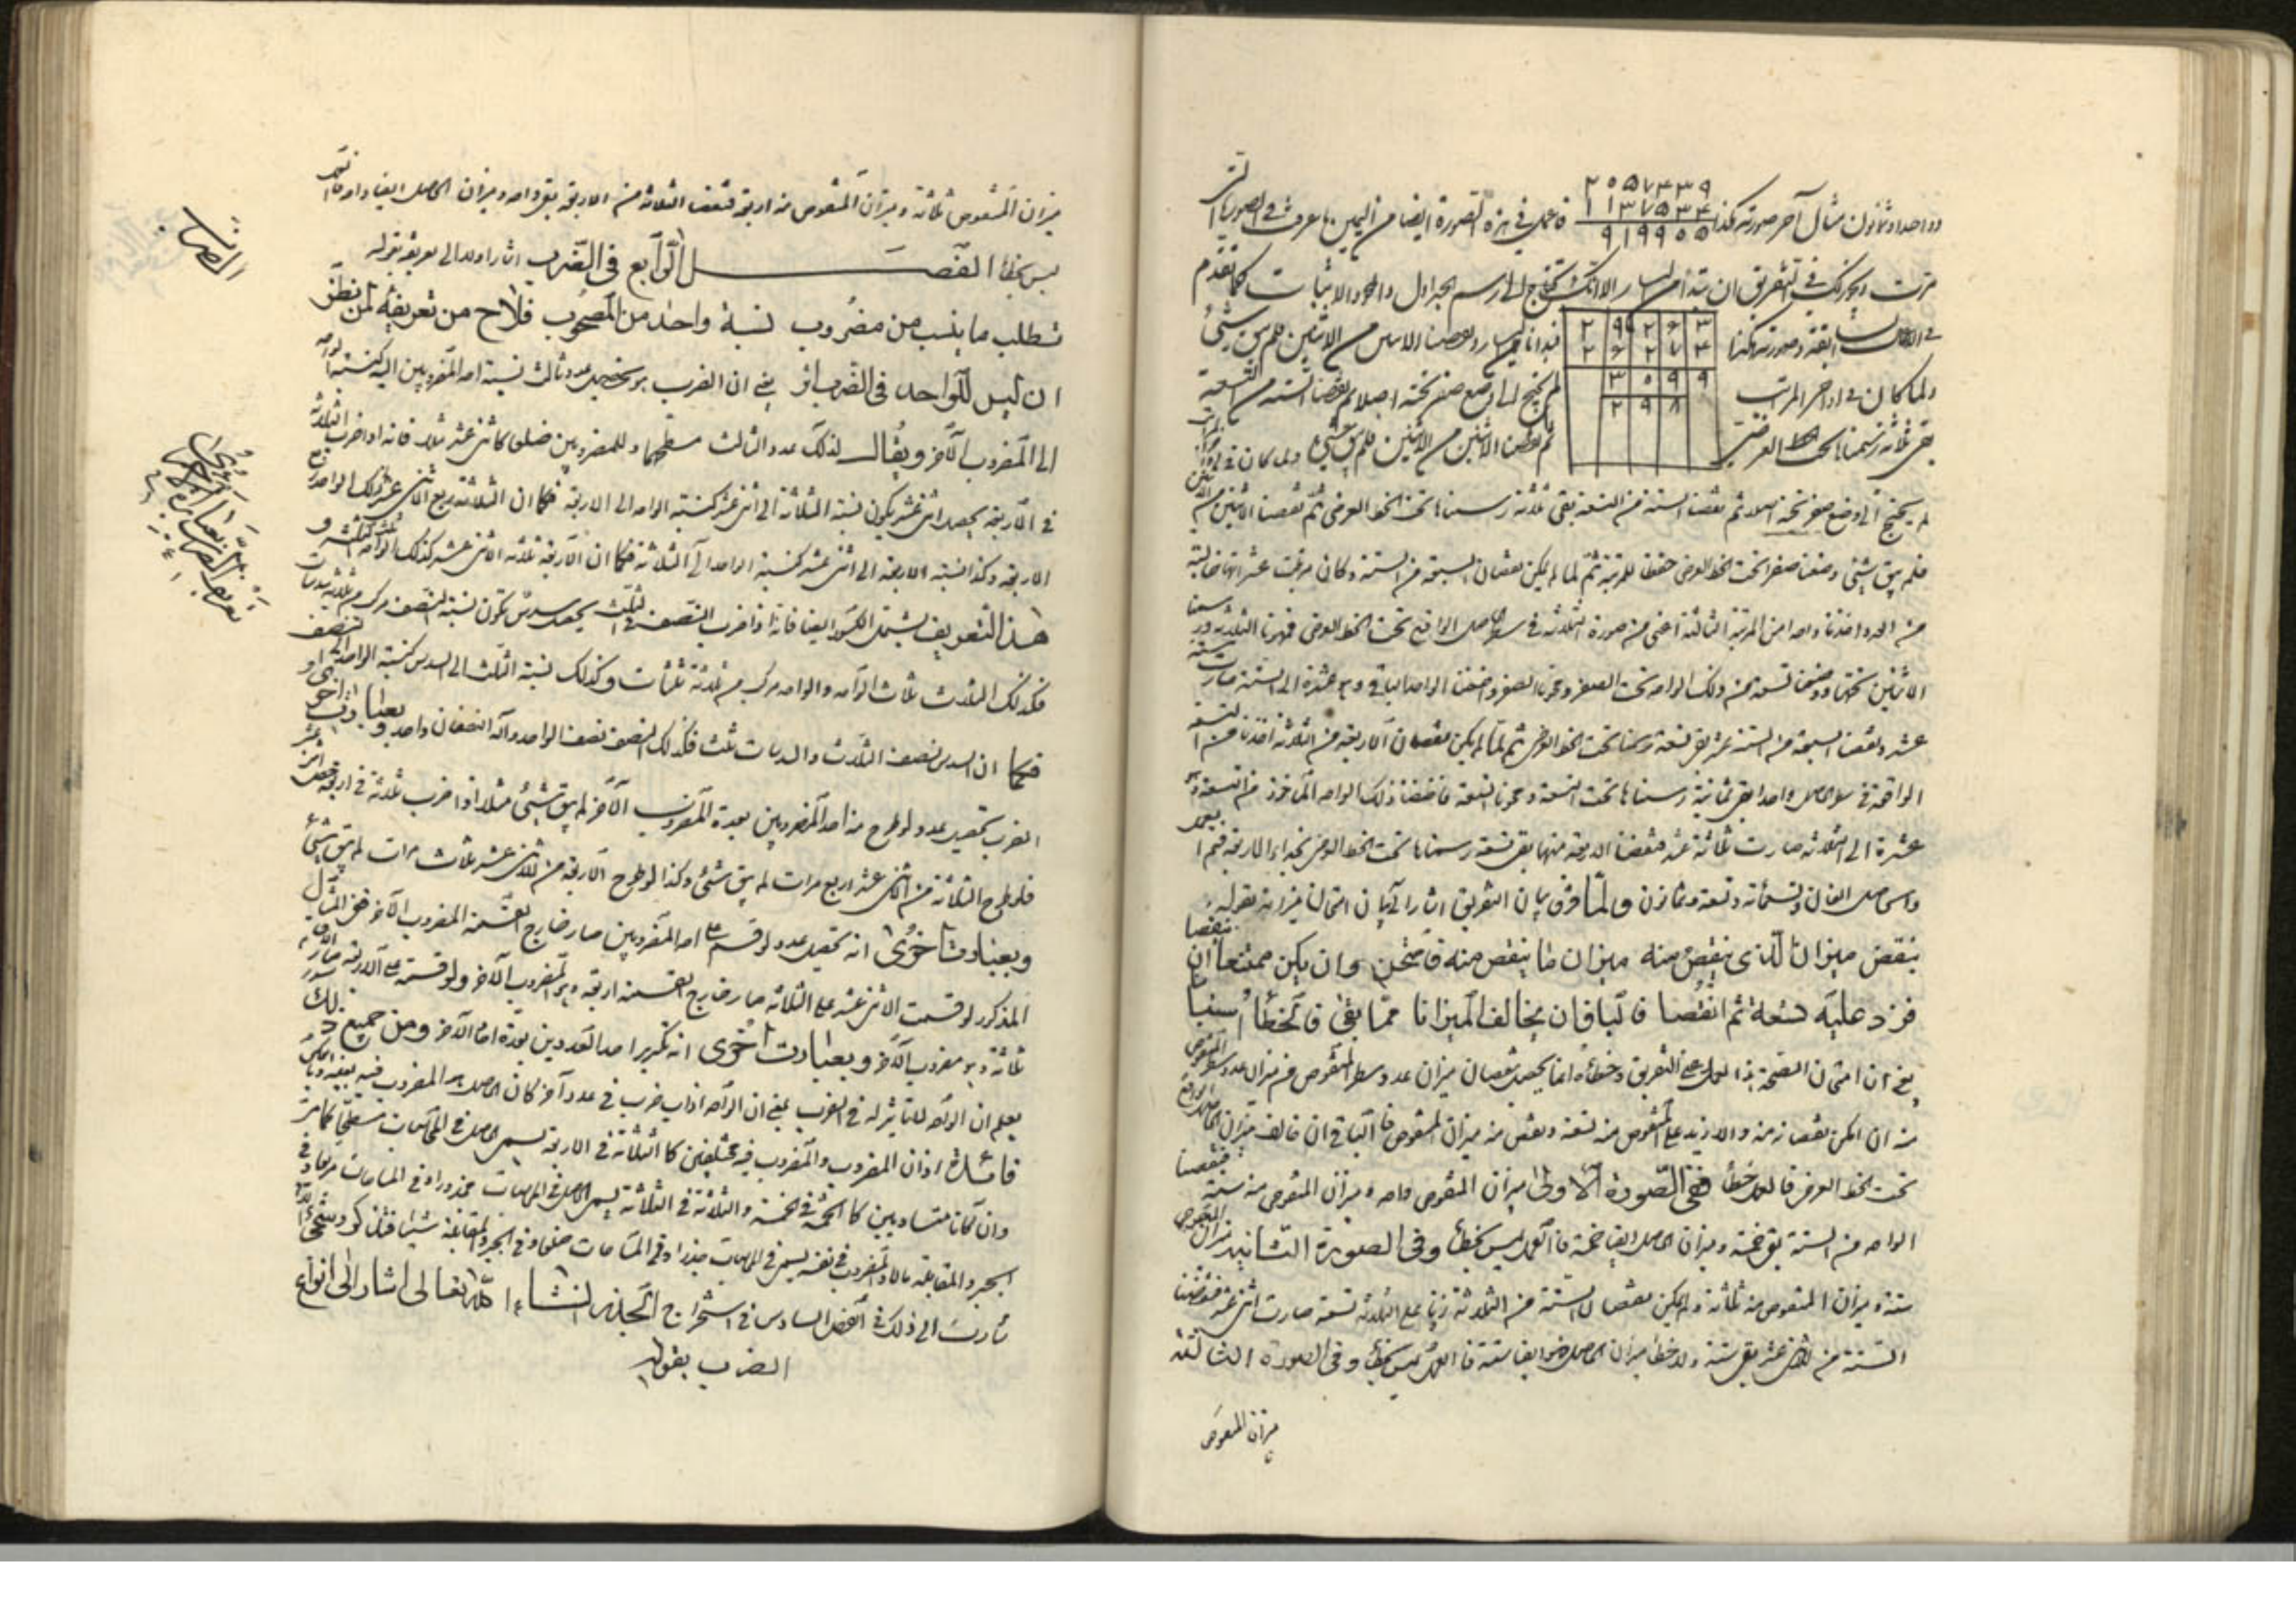 وواحدا وثمانون مثال آخر صورته هكذا
٢٠٥٧٤٣٩
١١٣٧٥٣٤
٩١٩٩٠٥
فاعمل في هذه الصورة ايضا من اليمين ما عرفت في الصورة
مرت ويجوزلك في التفريق ان تبدأ من اليسار الا انك تحتاج الى رسم الجداول والمحو والاثبات كما تقدم
في الاعمال السابقة وصورته هكذا
فبدأنا من اليسار ونقصنا الاثنين من الاثنين فلم يبق شيئ
ولما كان في اواخر المراتب
لم يحتج الى وضع صفر تحته اصلا ثم نقصنا الستة من التسعة
بقى ثلاثة رسمناها تحت الخط العرضي
ثم نقصنا الاثنين من الاثنين فلم يبق شيئ
لم يحتج الى وضع صفر تحته اصلا ثم نقصنا الستة من التسعة بقى ثلاثة رسمناها تحت الخط العرضي ثم نقصنا الاثنين
فلم يبق شيئ وضعنا صفرا تحت الخط العرضي حفظا للمرتبة ثم لما لم يكن نقصان السبعة من الستة وكان مرتبة عشراتها خالية
من العدد اخذنا واحدا من المرتبة الثالثة اعنى من صورة الثلاثة في سطر الحاصل الواقع تحت الخط العرضي فمحونا الثلاثة ورسمنا
الاثنين تحتها ووضعنا تسعة من ذلك الواحد تحت الصفر ومحونا الصفر واضفنا الواحد الباقي وهو عشرة الى الستة صارت ستة
عشر ونقصنا السبعة من الستة عشر بقى تسعة رسمناها تحت الخط العرضي ثم لما لم يكن نقصان الاربعة من الثلاثة اخذنا من التسعة
الواقعة في سطر الحاصل واحدا بقى ثمانية رسمناها تحت التسعة ومحونا التسعة فاضفنا ذلك الواحد المأخوذ من التسعة وهو
عشرة الى الثلاثة صارت ثلاثة عشر فنقصنا الاربعة منها بقى تسعة رسمناها تحت الخط العرضي بحذاء الاربعة فتم العمل
والحاصل الفان وتسعمائة وتسعة وثمانون ولما فرغ من بيان التفريق اشار الى بيان امتحان ميزانه بقوله
بنقص ميزان الذي ينقص منه ميزان ما ينقص منه فامتحن وان يكن ممتنعا ان ينقصا
فزد عليه تسعة ثم انقصا فالباق ان يخالف الميزانا مما بقى فالخطأ استبانا
يعنى ان امتحان الصحة بهذا العمل على التفريق وخطأه انما يحصل بنقصان ميزان عدد سطر المنقوص من ميزان عدد سطر المنقوص
منه ان امكن نقصانه منه والا زيد على المنقوص منه تسعة ونقص منه ميزان المنقوص فالباقي ان خالف ميزان الحاصل الواقع
تحت الخط العرضي فالعمل خطأ ففى الصورة الاولى ميزان المنقوص واحد وميزان المنقوص منه ستة فنقصنا
الواحد من الستة بقى خمسة وميزان الحاصل ايضا خمسة فالعمل ليس بخطأ وفى الصورة الثانية ميزان المنقوص
ستة وميزان المنقوص منه ثلاثة ولم يمكن نقصان الستة من الثلاثة زدنا على الثلاثة تسعة صارت اثنى عشر فنقصنا
الستة من الاثنى عشر بقى ستة ولاحظنا ميزان الحاصل فهو ايضا ستة فالعمل ليس بخطأ وفى الصورة الثالثة
ميزان المنقوص
ميزان المنقوص ثلاثة وميزان المنقوص منه اربعة فنقصنا الثلاثة من الاربعة بقى واحد وميزان الحاصل ايضا واحد فالعمل
ليس بخطأ الفصل الرابع فى الضرب اشار اولا الى تعريفه بقوله
تطلب ما ينسب من مضروب نسبة واحد من المصحوب فلاح من تعريفه لمن نظر
ان ليس للواحد فى الضرب اثر يعنى ان الضرب هو تحصيل عدد ثالث نسبة احد المضروبين اليه كنسبة الواحد
الى المضروب الآخر ويقال لذلك عدد الثالث مسطحهما وللمضروبين ضلعا كاثنى عشر مثلا فانه اذا ضرب الثلاثة
في الاربعة يحصل اثنى عشر يكون نسبة الثلاثة الى اثنى عشر كنسبة الواحد الى الاربعة فكما ان الثلاثة ربع الاثنى عشر كذلك الواحد ربع
الاربعة وكذا نسبة الاربعة الى اثنى عشر كنسبة الواحد الى الثلاثة فكما ان الاربعة ثلث الاثنى عشر كذلك الواحد ثلث الثلاثة و
هذا التعريف يشتمل الكسور ايضا فانه اذا ضرب النصف في الثلث يحصل سدس تكون نسبة النصف مركب من ثلاثة سدسات
فكذلك الثلاث ثلاث الواحد والواحد مركب من ثلاثة ثلثات وكذلك نسبة الثلث الى السدس كنسبة الواحد الى النصف
فكما ان السدس نصف الثلاث والسدسات ثلث فكذلك النصف نصف الواحد والنصفان واحد وبعبارت اخرى
الضرب تحصيل عدد لو طرح منه احد المضروبين بعدة المضروب الآخر لم يبق شيئ مثلا اذا ضرب ثلاثة في اربعة حصل اثنى عشر
فلو طرح الثلاثة من اثنى عشر اربع مرات لم يبق شيئ وكذا لو طرح الاربعة من الاثنى عشر ثلاث مرات لم يبق شيئ
وبعبارت اخرى انه تحصيل عدد لو قسم على احد المضروبين صار خارج القسمة المضروب الآخر ففى المثال
المذكور لو قسمت الاثنى عشر على الثلاثة صار خارج القسمة اربعة وهو المضروب الآخر ولو قسمته على الاربعة صار
ثلاثة وهو مضروب الآخر وبعبارت اخرى انه تكرير احد العددين بعدة احاد الآخر ومن جميع ذلك
يعلم ان الواحد لا تأثير له في الضرب يعنى ان الواحد اذا ضرب في عدد آخر كان الحاصل هو المضروب فيه بعينه
فائدة اذا كان المضروب والمضروب فيه مختلفين كالثلاثة في الاربعة يسمى الحاصل في المحاسبات مسطحا
وان كانا متساويين كالخمسة في خمسة والثلاثة في الثلاثة يسمى الحاصل في المحاسبات مجذورا وفي المساحات مربعا وفي
الجبر والمقابلة مالا والمضروب في نفسه يسمى في المحاسبات جذرا وفي المساحات ضلعا وفي الجبر والمقابلة شيئا
الى ذلك في الفصل السادس في استخراج الجذر ان شاء الله تعالى اشار الى انواع
الضرب بقوله
الضرب